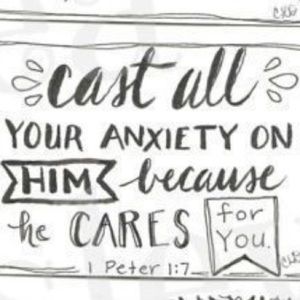 cast all
YOUR ANXIETY ON
HIM because
he CARES for
You.
1 Peter 1:7